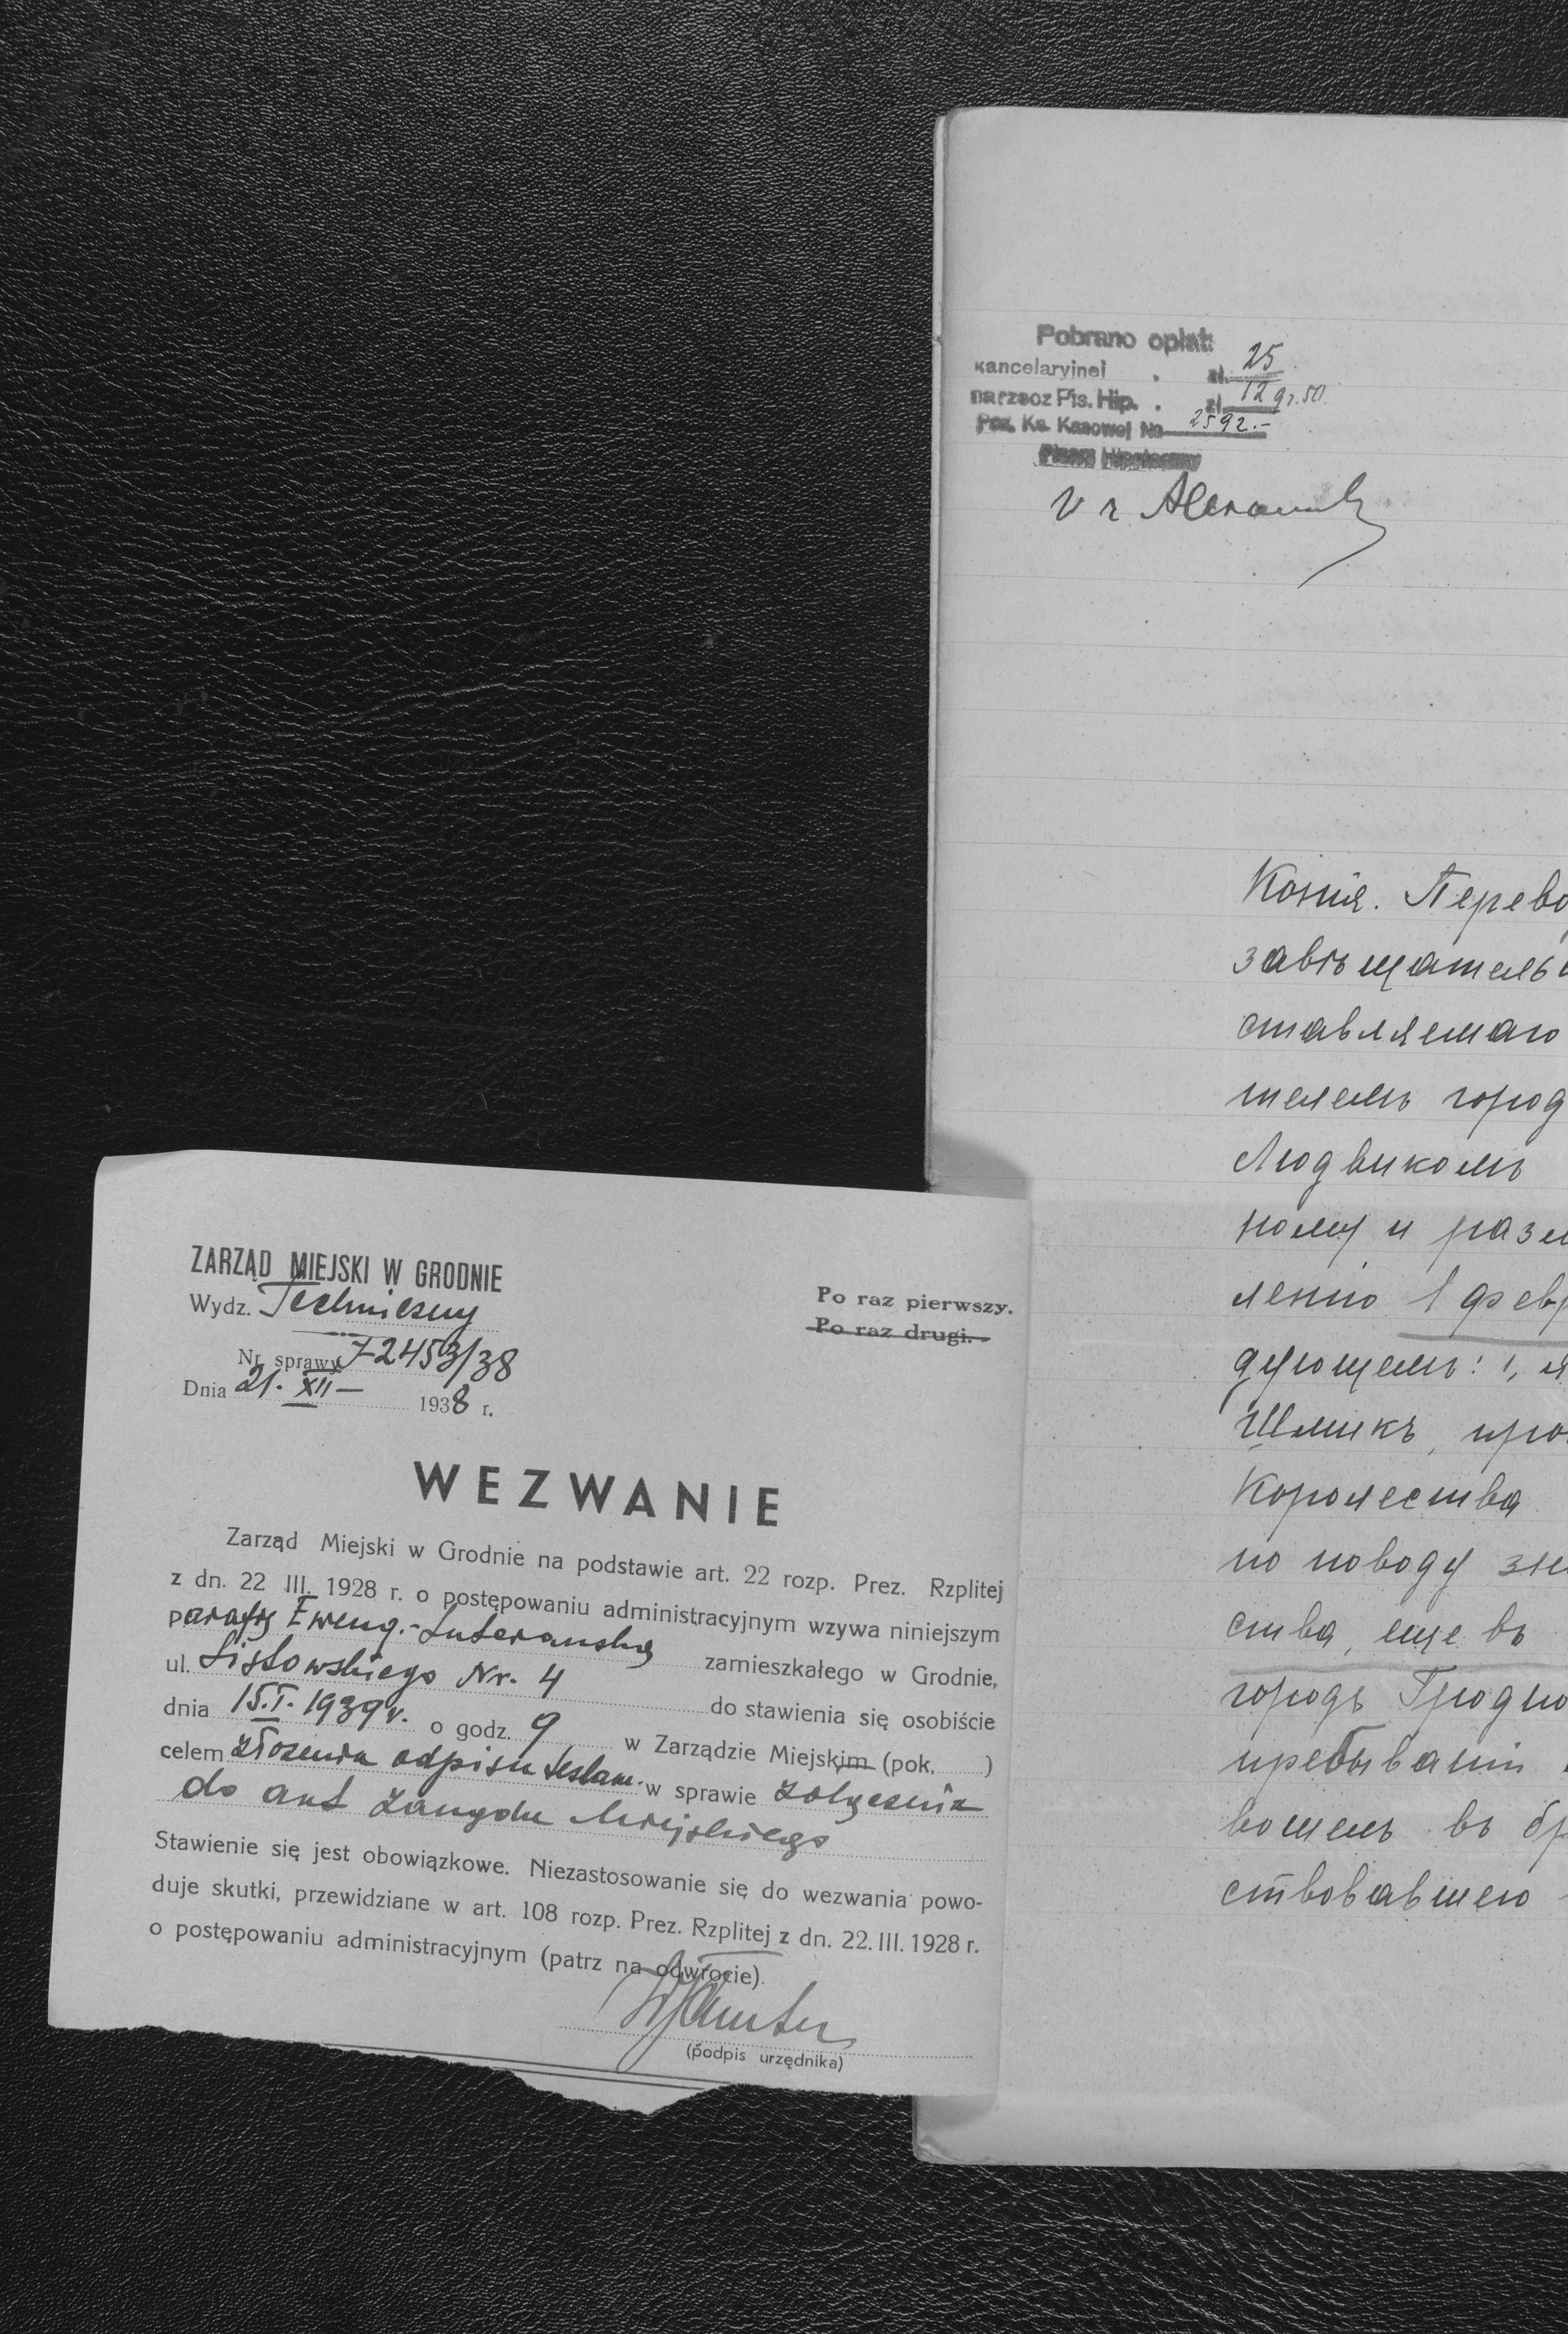 Pobrano opłat:
kancelaryjnej . zł. 25
na rzecz Pis. Hip. . zł. 12 gr. 50.
Poz. Ks. Kasowej No 2592.-
Pisarz Hipoteczny
Копiя. Перево
завѣщатель
ставляемаго
телемъ город
Людвикомъ
ному и разм
ленiю 1 февр
дующемъ: 1, я
Шликъ, про
Королества
по поводу зн
ства, еще въ
городъ Гродно
пребыванiи
вошелъ въ бр
ствовавшею
ZARZĄD MIEJSKI W GRODNIE
Wydz. Techniczny
Po raz pierwszy.
Po raz drugi.
Nr. sprawy 7-2453/38
Dnia 21. XII- 1938 r.
WEZWANIE
Zarząd Miejski w Grodnie na podstawie art. 22 rozp. Prez. Rzplitej
z dn. 22 III. 1928 r. o postępowaniu administracyjnym wzywa niniejszym
parafię Eweng.-Luterańską zamieszkałego w Grodnie,
ul. Listowskiego Nr. 4 do stawienia się osobiście
dnia 15.I.1939 r. o godz. 9 w Zarządzie Miejskim (pok. )
celem złożenia odpisu testam. w sprawie załączenia
do akt Zarządu Miejskiego
Stawienie się jest obowiązkowe. Niezastosowanie się do wezwania powo-
duje skutki, przewidziane w art. 108 rozp. Prez. Rzplitej z dn. 22. III. 1928 r.
o postępowaniu administracyjnym (patrz na odwrocie).
(podpis urzędnika)